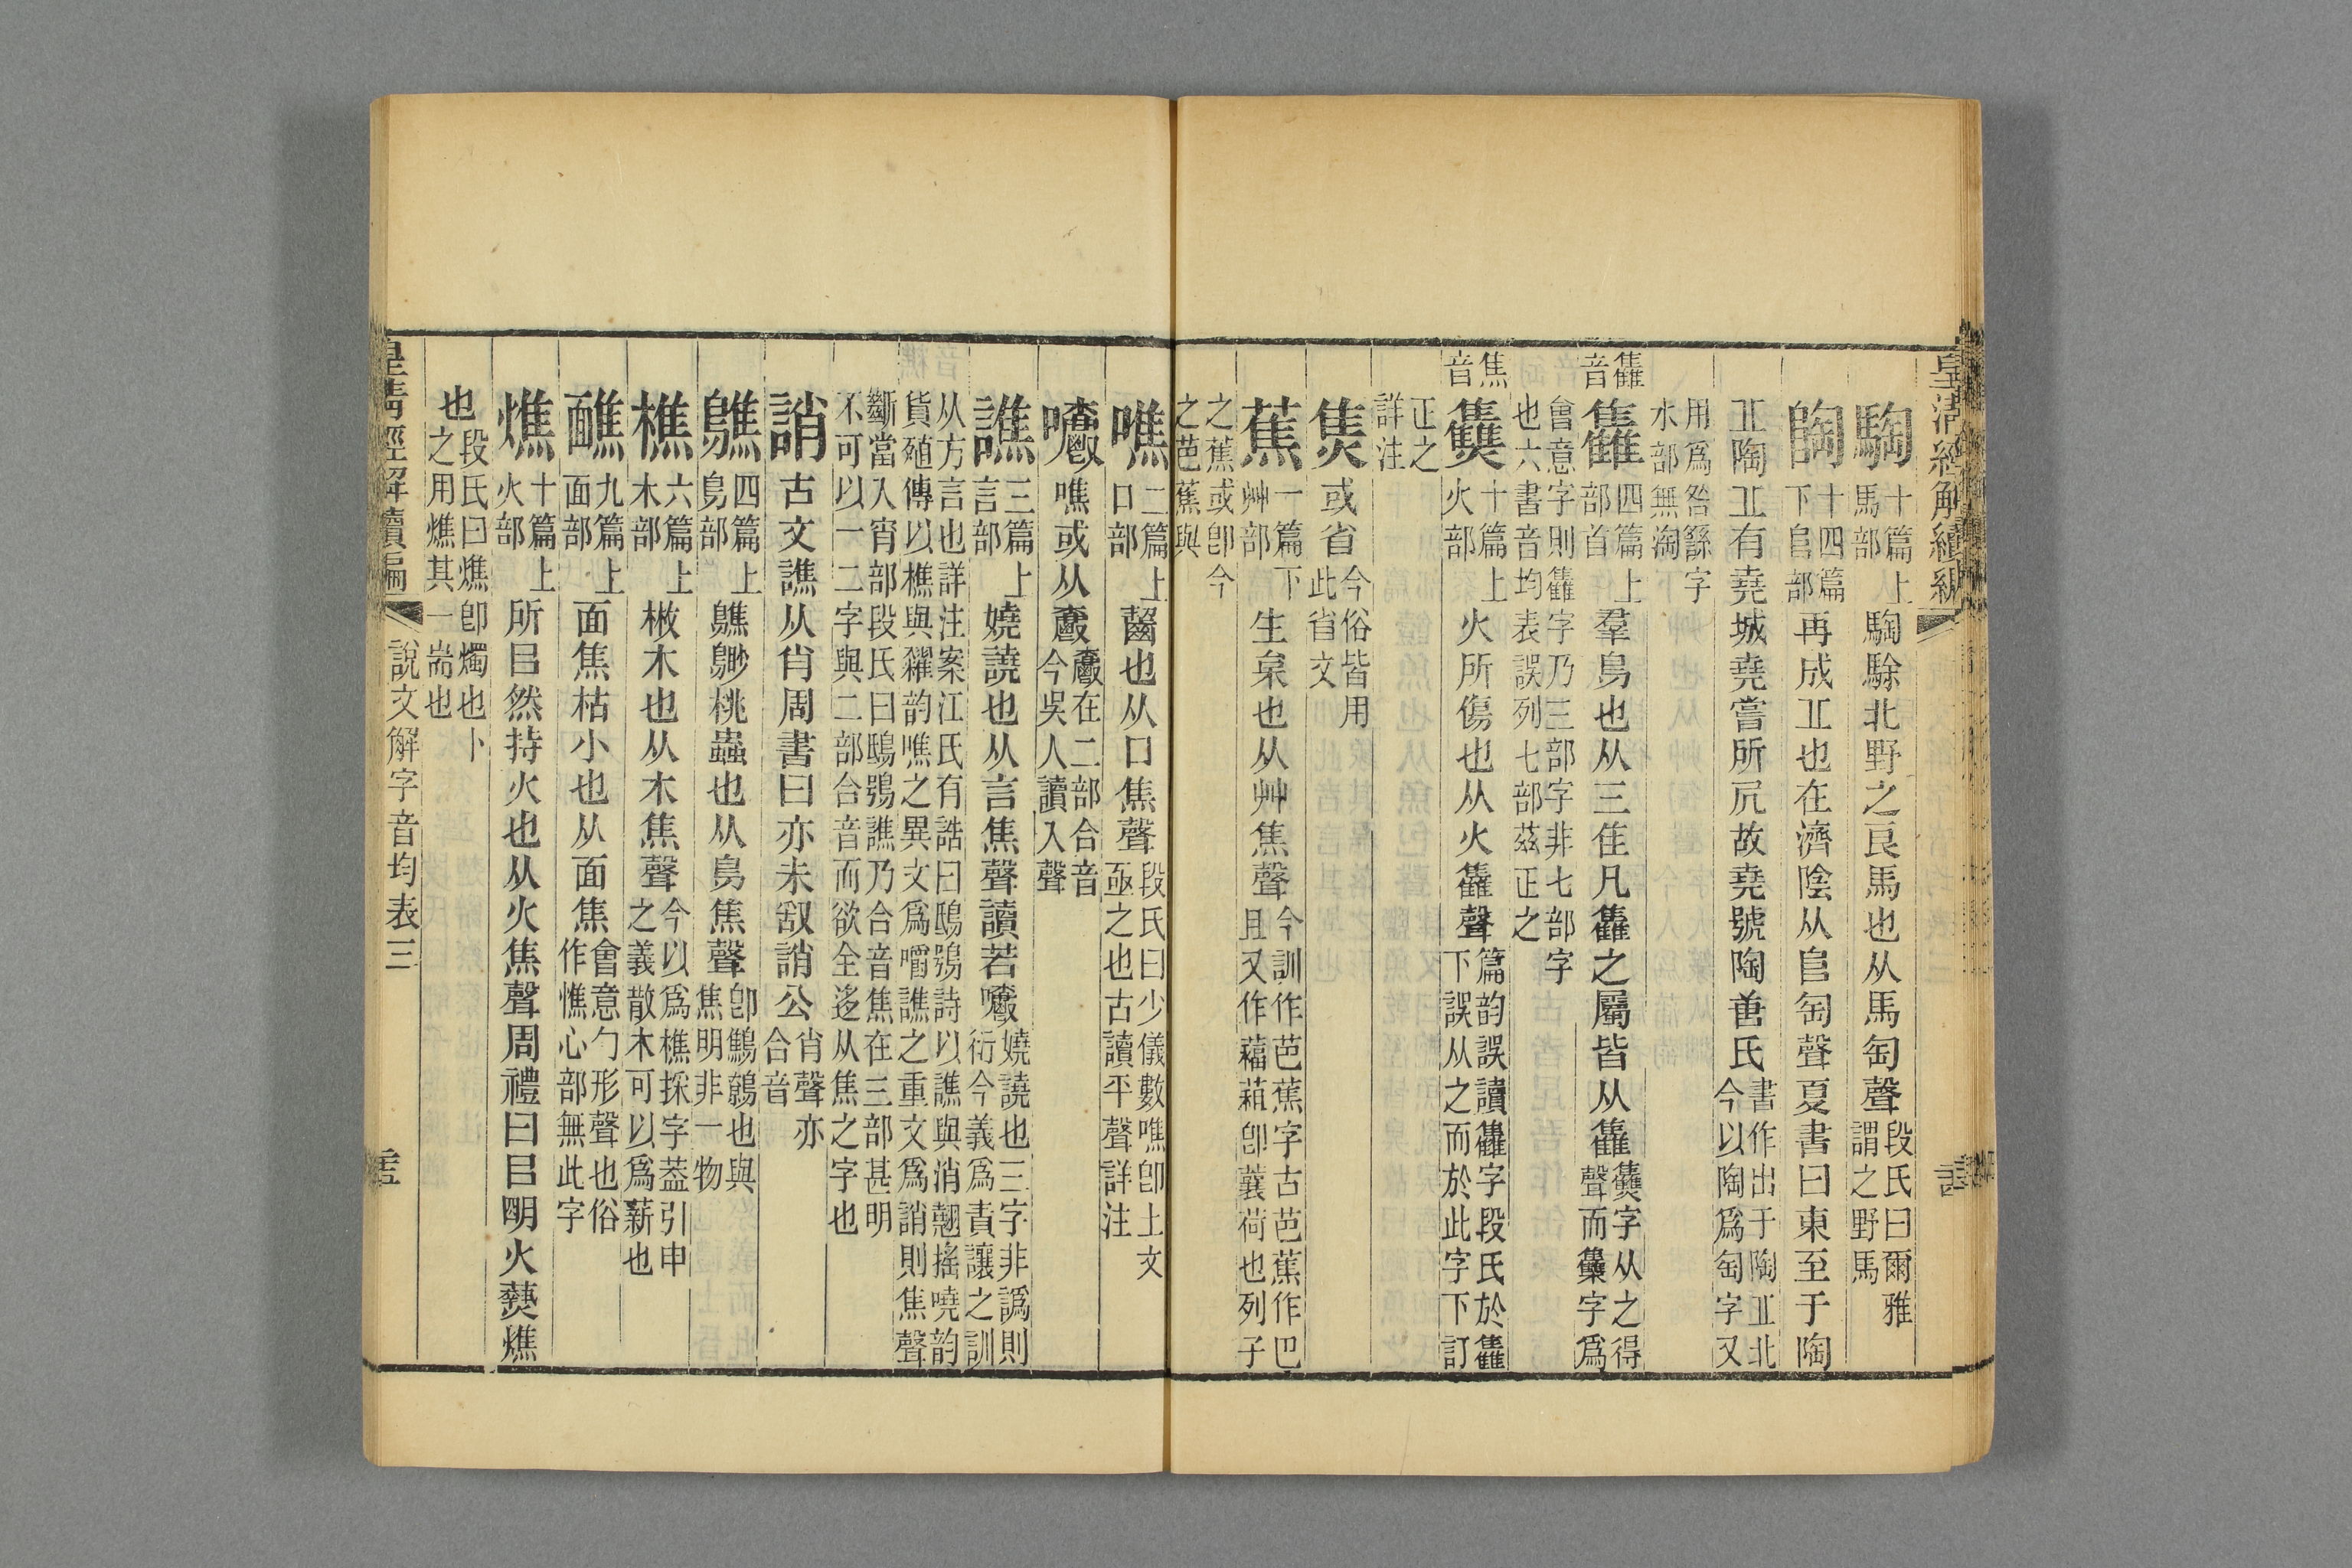 皇淸經解續編
騊十篇上馬部騊駼北野之良馬也从馬匋聲段氏曰爾雅謂之野馬
陶十四篇下𨸏部再成丘也在濟陰从𨸏匋聲夏書曰東至于陶
丘陶丘有堯城堯嘗所凥故堯號陶唐氏書作出于陶丘北今以陶爲匋字又
用爲咎繇字水部無淘
雥音
雥四篇上部首羣鳥也从三隹凡雥之屬皆从雥㸈字从之得聲而雧字爲
會意字則雥字乃三部字非七部字也六書音均表誤列七部茲正之
焦音
㸈十篇上火部火所傷也从火雥聲篇韵誤讀雥字段氏於雥下誤从之而於此字下訂
正之詳注
焦或省今俗皆用此省文
蕉一篇下艸部生枲也从艸焦聲今訓作芭蕉字古芭蕉作巴且又作葍蒩卽蘘荷也列子
之蕉或卽今之芭蕉與
噍二篇上口部齧也从口焦聲段氏曰少儀數噍卽上文亟之也古讀平聲詳注
嚼噍或从爵爵在二部合音今吳人讀入聲
譙三篇上言部嬈譊也从言焦聲讀若嚼嬈譊也三字非譌則衍今義爲責讓之訓
从方言也詳注案江氏有誥曰鴟鴞詩以譙與消翹搖嘵韵貨殖傳以樵與糴韵噍之異文爲嚼譙之重文爲誚則焦聲
斷當入宵部段氏曰鴟鴞譙乃合音焦在三部甚明不可以一二字與二部合音而欲全迻从焦之字也
誚古文譙从肖周書曰亦未敢誚公肖聲亦合音
鷦四篇上鳥部鷦䳟桃蟲也从鳥焦聲卽鷦鷯也與焦明非一物
樵六篇上木部散木也从木焦聲今以爲樵採字葢引申之義散木可以爲薪也
醮九篇上面部面焦枯小也从面焦會意勹形聲也俗作憔心部無此字
燋十篇上火部所㠯然持火也从火焦聲周禮曰㠯明火爇燋
也段氏曰燋卽燭也卜之用燋其一耑也
皇淸經解續編 說文解字音均表三